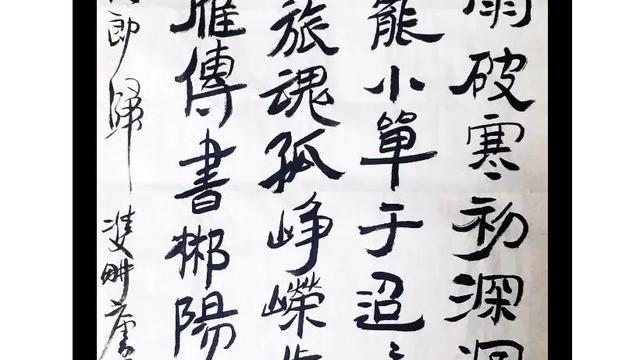 雨破寒初深
罷小單于迢
旅魂孤崢嶸
雁傳書郴陽
郎歸